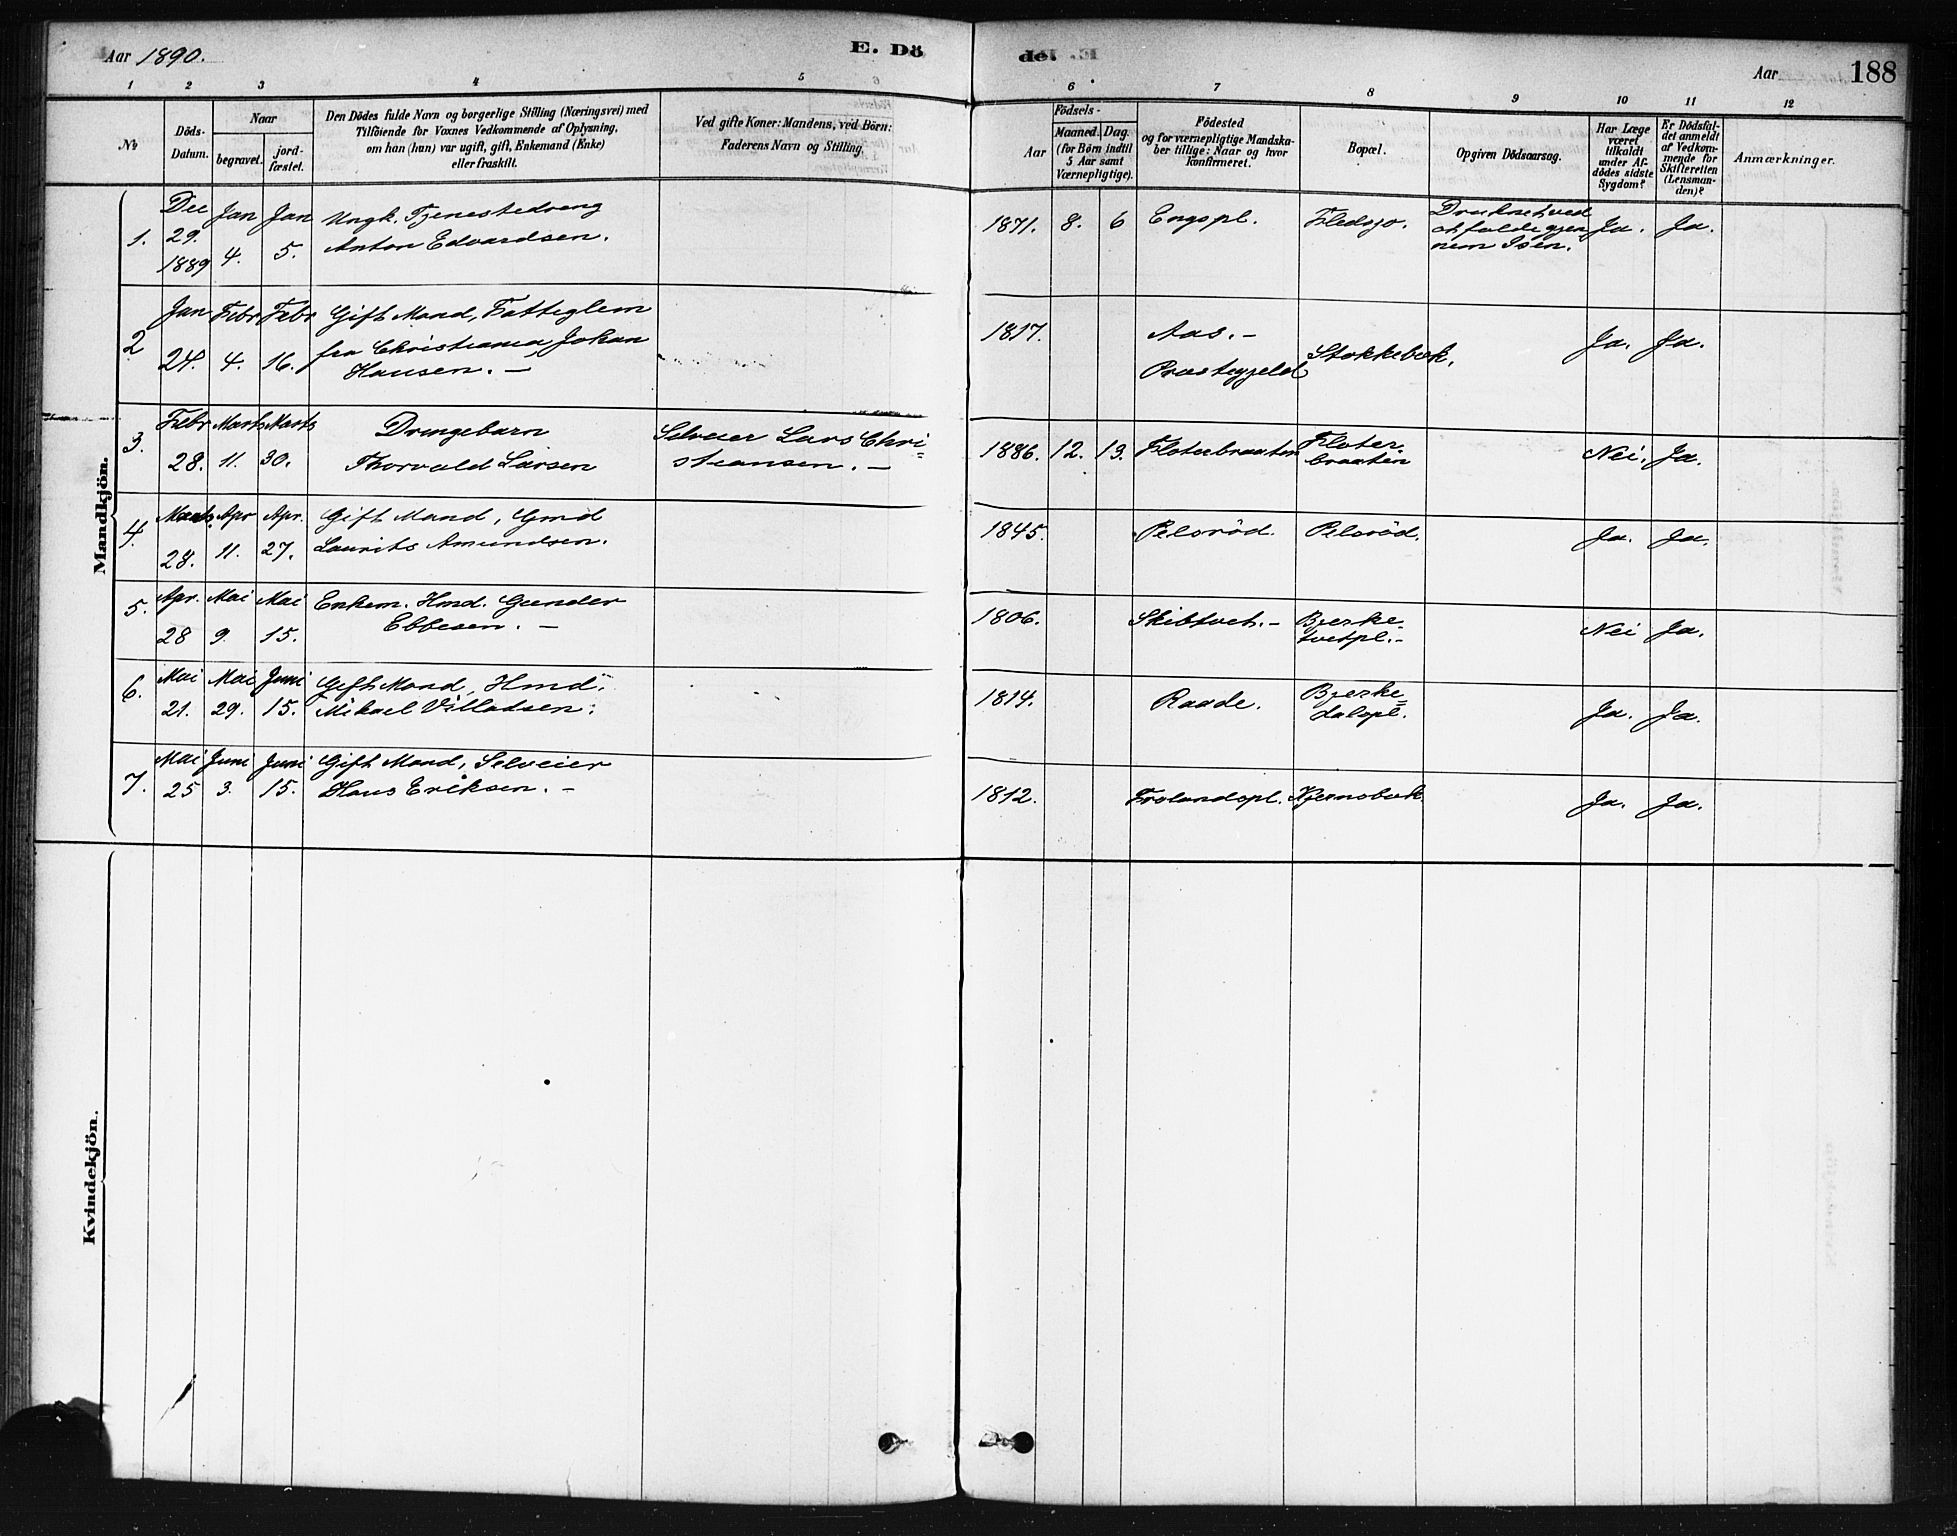 Aar 1890.
E. Dö
de.
Aar
188
1 2 3 4 5 6 7 8 9 10 11 12
No
Döds-
Datum.
Naar
begravet.
jord-
fæstet.
Den Dödes fulde Navn og borgerlige Stilling (Næringsvei) med
Tilföiende for Voxnes Vedkommende af Oplysning,
om han (hun) var ugift, gift, Enkemand (Enke)
eller fraskilt.
Ved gifte Koner: Mandens, ved Börn:
Faderens Navn og Stilling.
Födsels-
Aar
Maaned. Dag.
(for Börn indtil
5 Aar samt
Værnepligtige).
Födested
og for værnepligtige Mandska-
ber tillige: Naar og hvor
konfirmeret.
Bopæl.
Opgiven Dödsaarsag.
Har Læge
været
tilkaldt
under Af-
dödes sidste
Sygdom?
Er Dödsfal-
det anmeldt
af Vedkom-
mende for
Skifteretten
(Lensman-
den)?
Anmærkninger.
Mandkjön.
1. Dec 29. 1889 Jan 4. Jan 5.
Ungk. Tjenestedreng
Anton Edvardsen.
1871. 8. 6 Engspl. Fledsjø.
Druknet ved
at falde gjen
nem Isen.
Ja. Ja.
2 Jan 24. Febr 4. Febr 16.
Gift Mand, Fattiglem
fra Christiania, Johan
Hansen. —
1817. Aas. —
Præstegjeld
Stokkebæk.
Ja. Ja.
3. Febr 28. Marts 11. Marts 30.
Drengebarn
Thorvald Larsen
Selveier Lars Chri=
stiansen. —
1886. 12. 13. Floterbraaten
Floter-
braaten
Nei. Ja.
4. Marts 28. Apr 11. Apr. 27.
Gift Mand, Gmd
Laurits Amundsen.
1845. Pelsröd. Pelsröd.
Ja. Ja.
5. Apr. 28 Mai 9. Mai 15.
Enkem. Hmd. Gunder
Ebbesen. —
1806. Skibtvet. —
Bjerke-
tvetpl. —
Nei Ja.
6. Mai 21. Mai 29. Juni 15.
Gift Mand, Hmd.
Mikael Villadsen.
1814. Raade.
Bjerke=
dalspl.
Ja. Ja.
7. Mai 25 Juni 3. Juni 15.
Gift Mand, Selveier
Hans Eriksen. —
1812. Frolandspl. Kjernsbæk
Ja. Ja.
Kvindekjön.